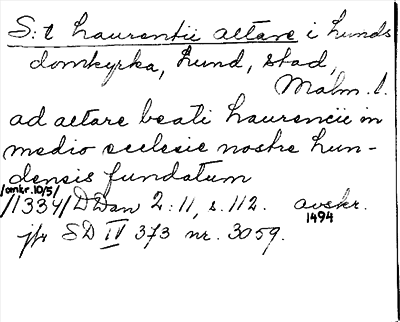 S:t Laurentii altare i Lunds
domkyrka, Lund, stad,
Malm. l.
ad altare beati Laurencii in
medio ecclesie nostre Lun-
densis fundatum
/omkr. 10/5/
/1334/ DDan 2:11, s. 112. avskr.
1494
jfr SD IV 373 nr. 3059.